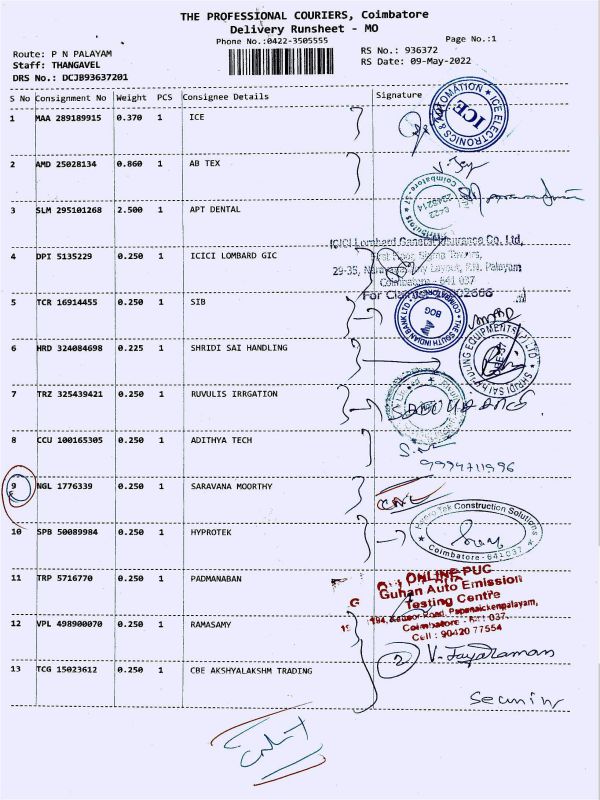 THE PROFESSIONAL COURIERS, Coimbatore
Delivery Runsheet - MO
Phone No.:0422-3505555
Page No.:1
Route: P N PALAYAM
RS No.: 936372
Staff: THANGAVEL
RS Date: 09-May-2022
DRS No.: DCJB93637201
S No Consignment No Weight PCS Consignee Details Signature
1 MAA 289189915 0.370 1 ICE
ICE ELECTRONICS & AUTOMATION
ICE
2 AMD 25028134 0.860 1 AB TEX
Coimbatore-37
0422
3 SLM 295101268 2.500 1 APT DENTAL
ICICI Lombard General Insurance Co. Ltd,
4 DPI 5135229 0.250 1 ICICI LOMBARD GIC
Coimbatore - 641 037
5 TCR 16914455 0.250 1 SIB
THE SOUTH INDIAN BANK LTD
BOG
6 HRD 324084698 0.225 1 SHRIDI SAI HANDLING
7 TRZ 325439421 0.250 1 RUVULIS IRRGATION
8 CCU 100165305 0.250 1 ADITHYA TECH
9994711996
9 NGL 1776339 0.250 1 SARAVANA MOORTHY
10 SPB 50089984 0.250 1 HYPROTEK
Construction Solutions
Coimbatore - 641 037
11 TRP 5716770 0.250 1 PADMANABAN
ONLINE PUC
Guhan Auto Emission
Testing Centre
12 VPL 498900070 0.250 1 RAMASAMY
Papanaickenpalayam,
Coimbatore - 641 037.
Cell : 90420 77554
2 V. Jayaraman
13 TCG 15023612 0.250 1 CBE AKSHYALAKSHM TRADING